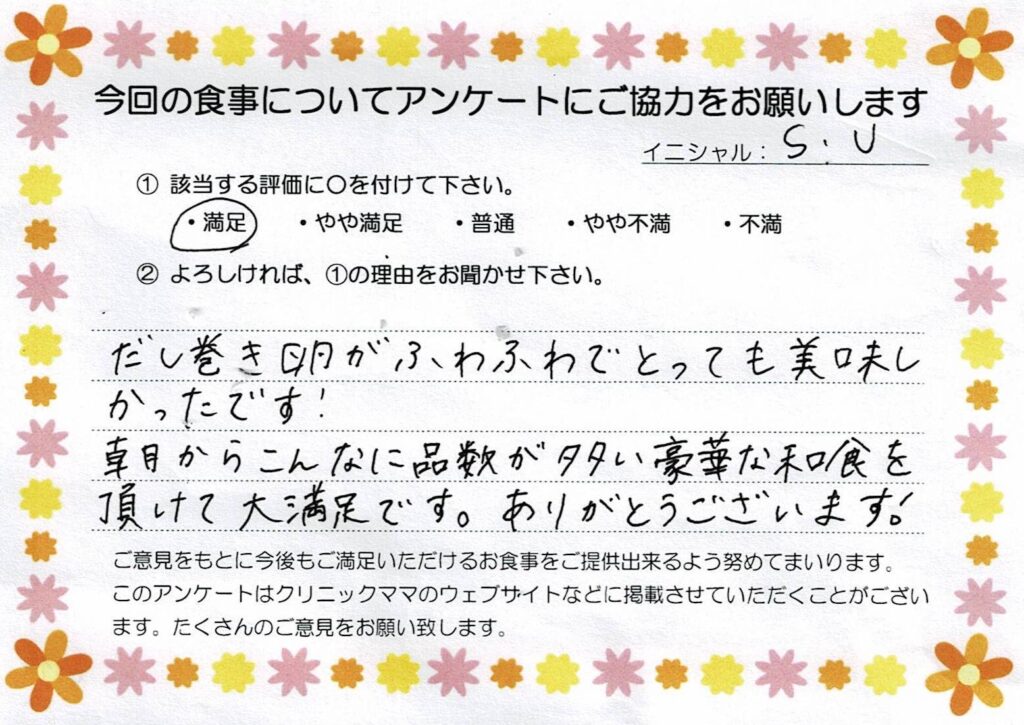 今回の食事についてアンケートにご協力をお願いします
イニシャル： S：U
① 該当する評価に〇を付けて下さい。
・満足　・やや満足　・普通　・やや不満　・不満
② よろしければ、①の理由をお聞かせ下さい。
だし巻き卵がふわふわでとっても美味し
かったです！
朝からこんなに品数が多い豪華な和食を
頂けて大満足です。ありがとうございます！
ご意見をもとに今後もご満足いただけるお食事をご提供出来るよう努めてまいります。
このアンケートはクリニックママのウェブサイトなどに掲載させていただくことがござい
ます。たくさんのご意見をお願い致します。